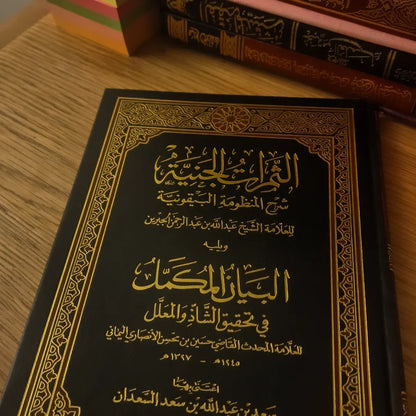 الثمرات الجنية
شرح المنظومة البيقونية
للعلامة الشيخ عبدالله بن عبدالرحمن الجبرين
ويليه
البيان المكمل
في تحقيق الشاذ والمعلل
للعلامة المحدث القاضي حسين بن محسن الأنصاري اليماني
١٢٤٥هـ - ١٣٢٧هـ
اعتنى بهما
سعد بن عبدالله بن سعد السعدان